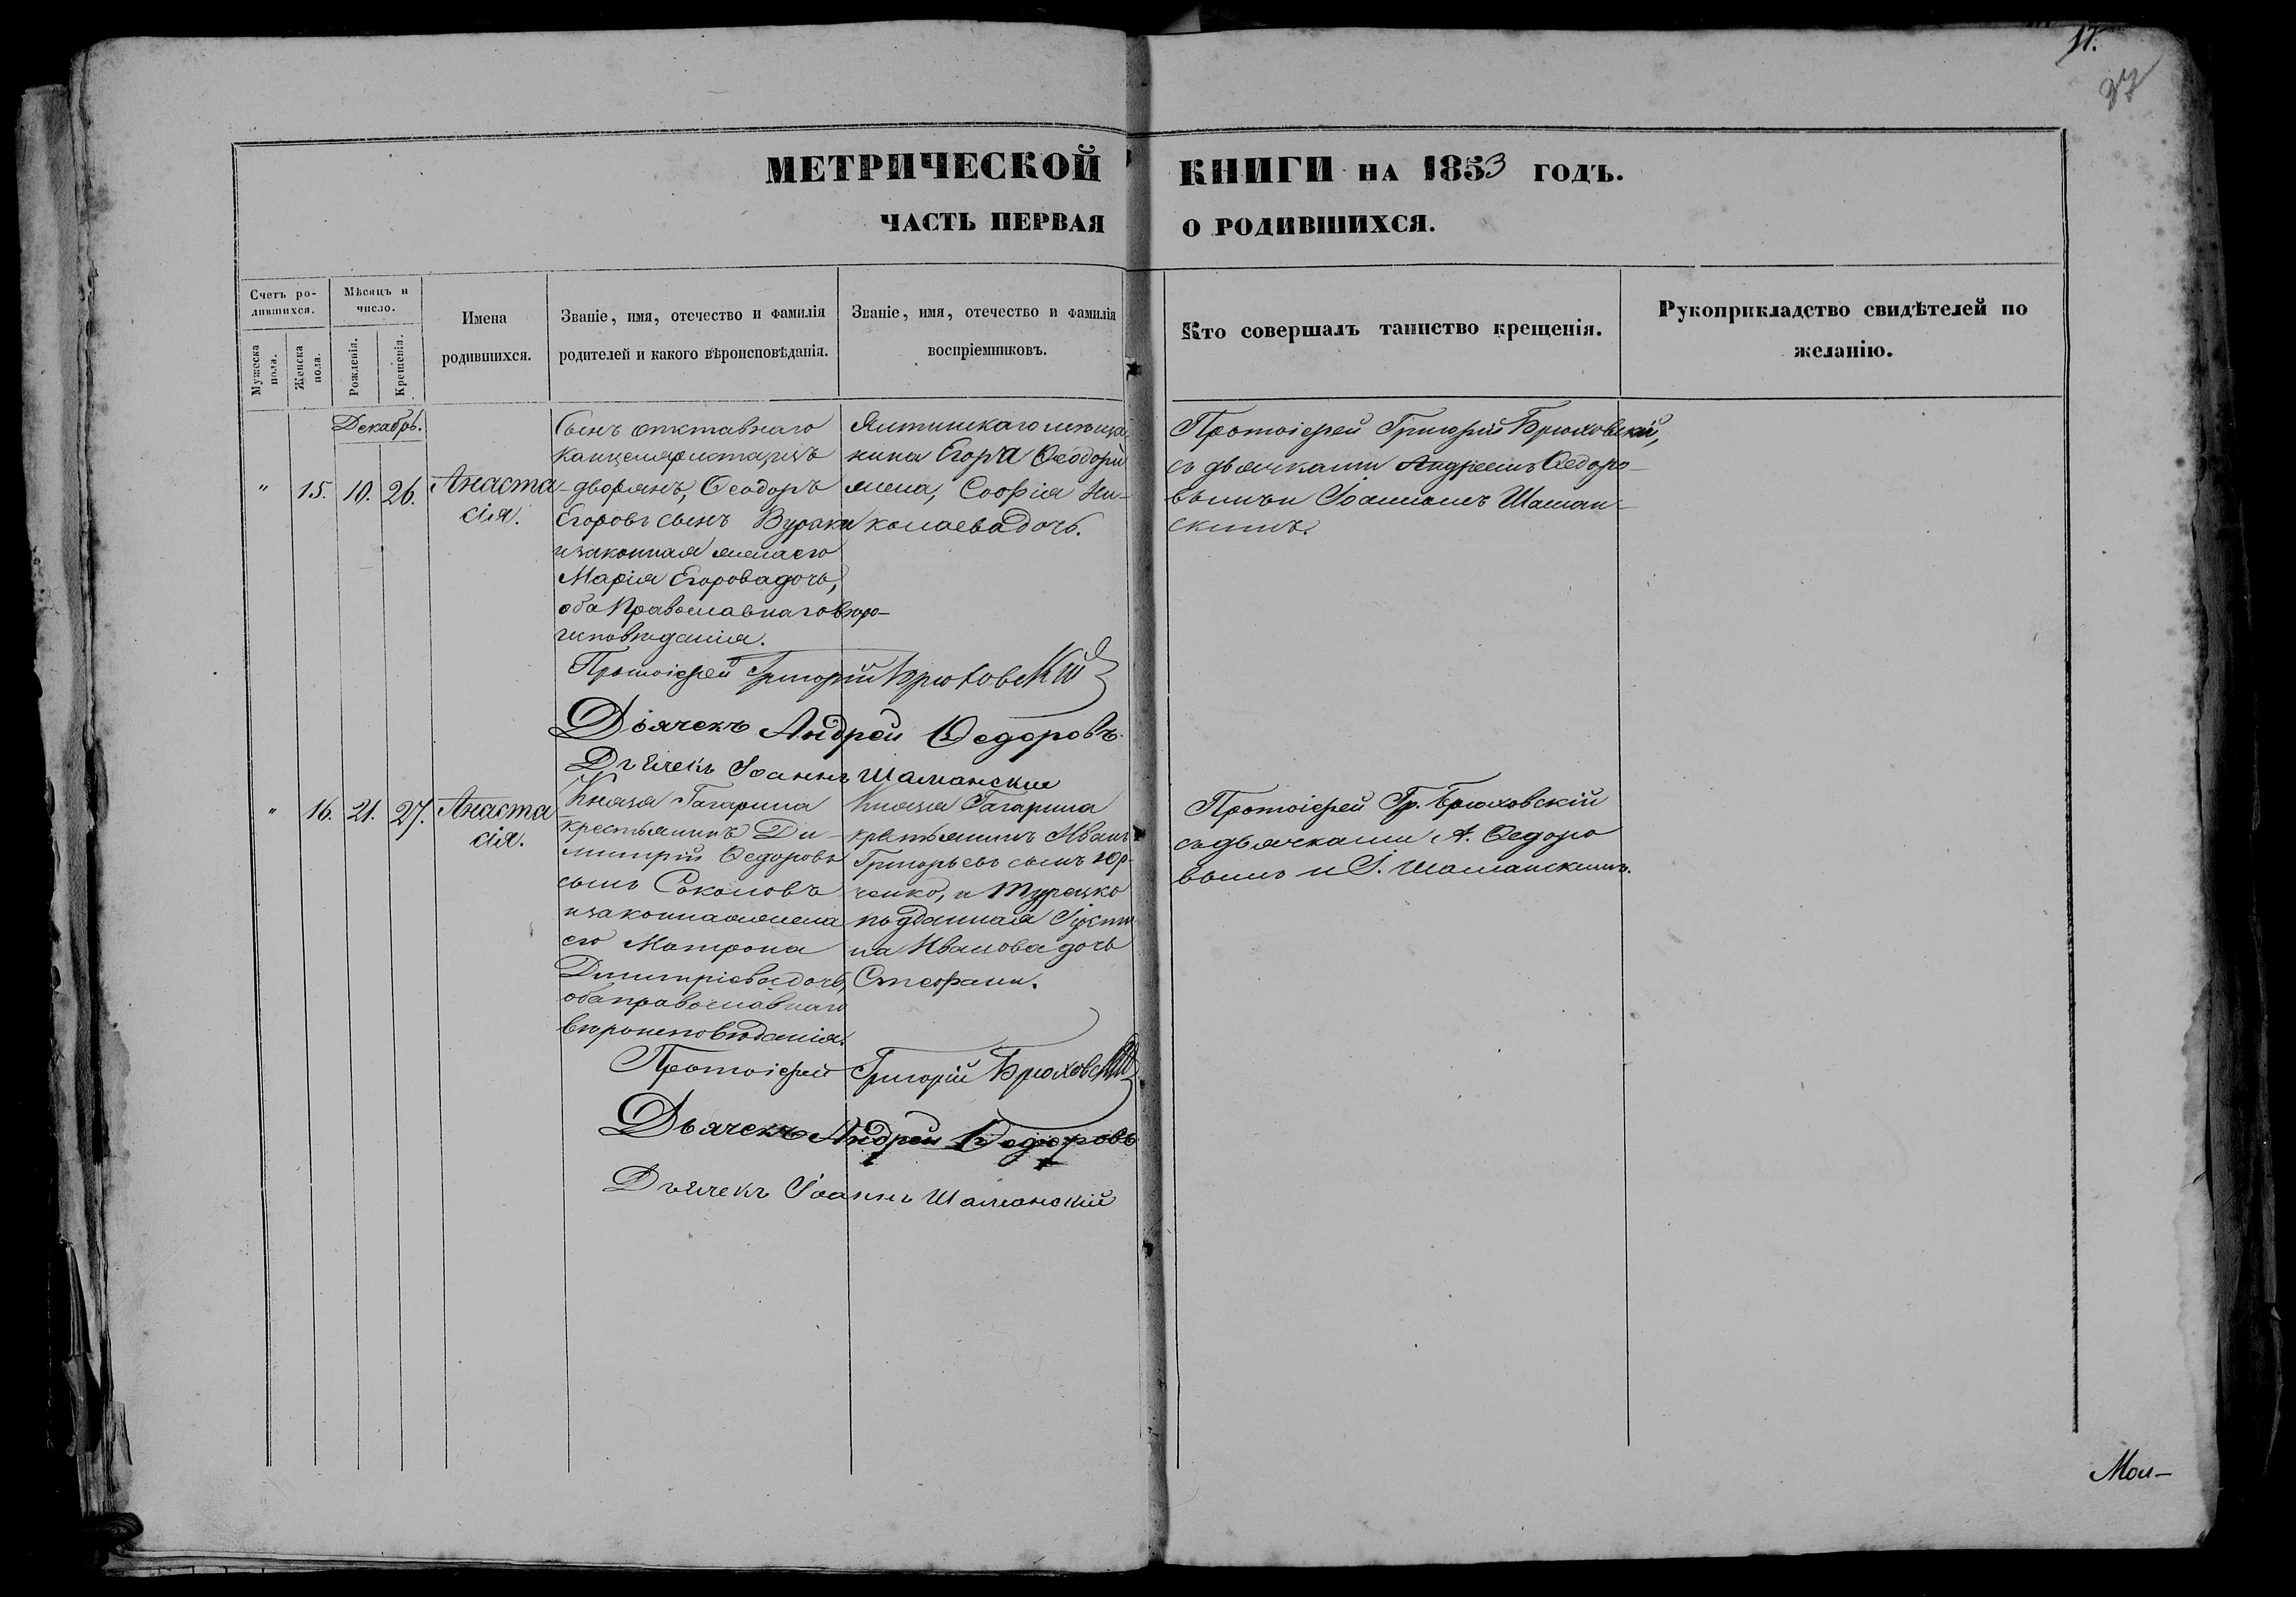 17.
37
МЕТРИЧЕСКОЙ КНИГИ НА 1853 ГОДЪ.
ЧАСТЬ ПЕРВАЯ О РОДИВШИХСЯ.
Счетъ ро-
дившихся.
Мужеска
пола.
Женска
пола.
Мѣсяцъ и
число.
Рожденія.
Крещенія.
Имена
родившихся.
Званіе, имя, отечество и фамилія
родителей и какого вѣроисповѣданія.
Званіе, имя, отечество и фамилія
воспріемниковъ.
Кто совершалъ таинство крещенія.
Рукоприкладство свидѣтелей по
желанію.
Декабрь.
" 15. 10. 26.
Анаста
сія.
Сынъ отставнаго
канцеляриста, изъ
дворянъ, Ѳеодоръ
Егоровъ сынъ
и законная жена его
Марія Егорова дочь,
оба Православнаго вѣро-
исповѣданія.
Ялтинскаго мѣща-
нина Егора Ѳеодори
жена, Софія Ни-
колаева дочь.
Протоіерей Григорій Брюховскій,
съ дьячками Андреемъ Ѳедоро-
вымъ и Іоанномъ Шаман-
скимъ.
Протоіерей Григорій Брюховскій
Дьячекъ Андрей Ѳедоровъ.
Дьячекъ Іоаннъ Шаманскій
" 16. 21. 27.
Анаста
сія.
Князя Гагарина
крестьянинъ Ди-
митрій Ѳедоровъ
сынъ Соколовъ
и законная жена
его Матрона
Димитріева дочь,
оба православнаго
вѣроисповѣданія.
Князя Гагарина
крестьянинъ Иванъ
Григорьевъ сынъ Юр-
ченко, и Турецко
подданная
на Иванова дочь
Стефани.
Протоіерей Гр. Брюховскій
съ дьячками А. Ѳедоро
вымъ и І. Шаманскимъ.
Протоіерей Григорій Брюховскій
Дьячекъ Андрей Ѳедоровъ
Дьячекъ Іоаннъ Шаманскій